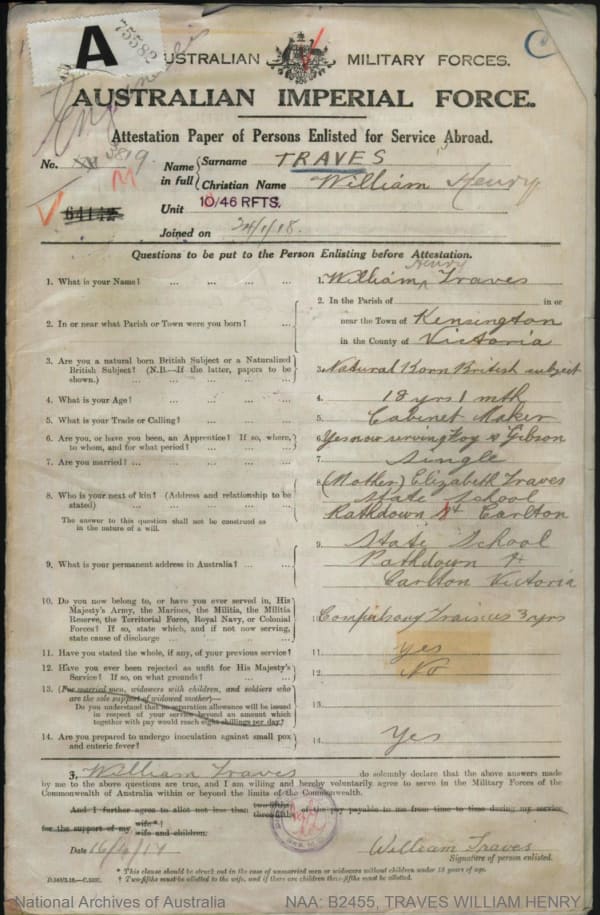 A 75582
AUSTRALIAN MILITARY FORCES.
AUSTRALIAN IMPERIAL FORCE.
Attestation Paper of Persons Enlisted for Service Abroad.
No. 3819
Name in full { Surname TRAVES
Christian Name William Henry
Unit 10/46 RFTS.
Joined on 24/1/18.
Questions to be put to the Person Enlisting before Attestation.
1. What is your Name? ... ... ... 1. William Henry Traves
2. In or near what Parish or Town were you born? ... 2. In the Parish of in or
near the Town of Kensington
in the County of Victoria
3. Are you a natural born British Subject or a Naturalized
British Subject? (N.B.—If the latter, papers to be
shown.) ... 3. Natural Born British subject
4. What is your Age? ... 4. 18 yrs 1 mth
5. What is your Trade or Calling? ... 5. Cabinet Maker
6. Are you, or have you been, an Apprentice? If so, where,
to whom, and for what period? ... 6. Yes now serving Foy & Gibson
7. Are you married? ... 7. Single
8. Who is your next of kin? (Address and relationship to be
stated) ... 8. (Mother) Elizabeth Traves
State School
Rathdown St Carlton
The answer to this question shall not be construed as
in the nature of a will.
9. What is your permanent address in Australia? ... 9. State School
Rathdown St
Carlton Victoria
10. Do you now belong to, or have you ever served in, His
Majesty's Army, the Marines, the Militia, the Militia
Reserve, the Territorial Force, Royal Navy, or Colonial
Forces? If so, state which, and if not now serving,
state cause of discharge ... Compulsory Trainees 3 yrs
11. Have you stated the whole, if any, of your previous service? 11. Yes
12. Have you ever been rejected as unfit for His Majesty's
Service? If so, on what grounds? ... 12. No
13. (For married men, widowers with children, and soldiers who
are the sole support of widowed mother)—
Do you understand that no separation allowance will be issued
in respect of your service beyond an amount which
together with pay would reach eight shillings per day? 13.
14. Are you prepared to undergo inoculation against small pox
and enteric fever? 14. Yes
I, William Traves do solemnly declare that the above answers made
by me to the above questions are true, and I am willing and hereby voluntarily agree to serve in the Military Forces of the
Commonwealth of Australia within or beyond the limits of the Commonwealth.
And I further agree to allot not less than two-fifths three-fifths of the pay payable to me from time to time during my service
for the support of my wife* wife and children.
Date
William Traves
Signature of person enlisted.
* This clause should be struck out in the case of unmarried men or widowers without children under 18 years of age.
† Two-fifths must be allotted to the wife, and if there are children three-fifths must be allotted.
National Archives of Australia NAA: B2455, TRAVES WILLIAM HENRY